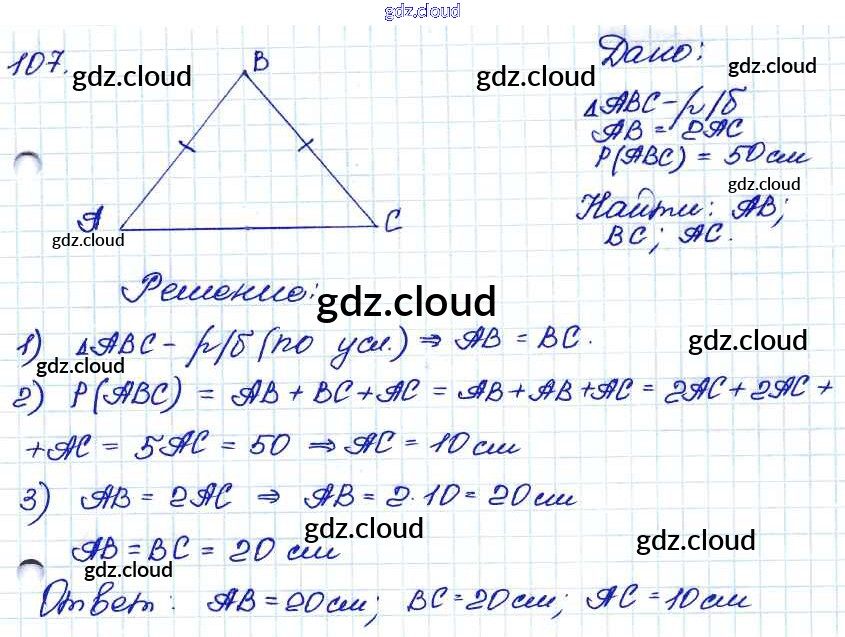 gdz.cloud
107.
B
A
C
Дано:
△ABC - р/б
AB = 2AC
P(ABC) = 50 см
Найти: AB;
BC; AC.
Решение:
1) △ABC - р/б (по усл.) ⇒ AB = BC.
2) P(ABC) = AB + BC + AC = AB + AB + AC = 2AC + 2AC +
+ AC = 5AC = 50 ⇒ AC = 10 см
3) AB = 2AC ⇒ AB = 2 · 10 = 20 см
AB = BC = 20 см
Ответ: AB = 20 см; BC = 20 см; AC = 10 см
gdz.cloud
gdz.cloud
gdz.cloud
gdz.cloud
gdz.cloud
gdz.cloud
gdz.cloud
gdz.cloud
gdz.cloud
gdz.cloud
gdz.cloud
gdz.cloud